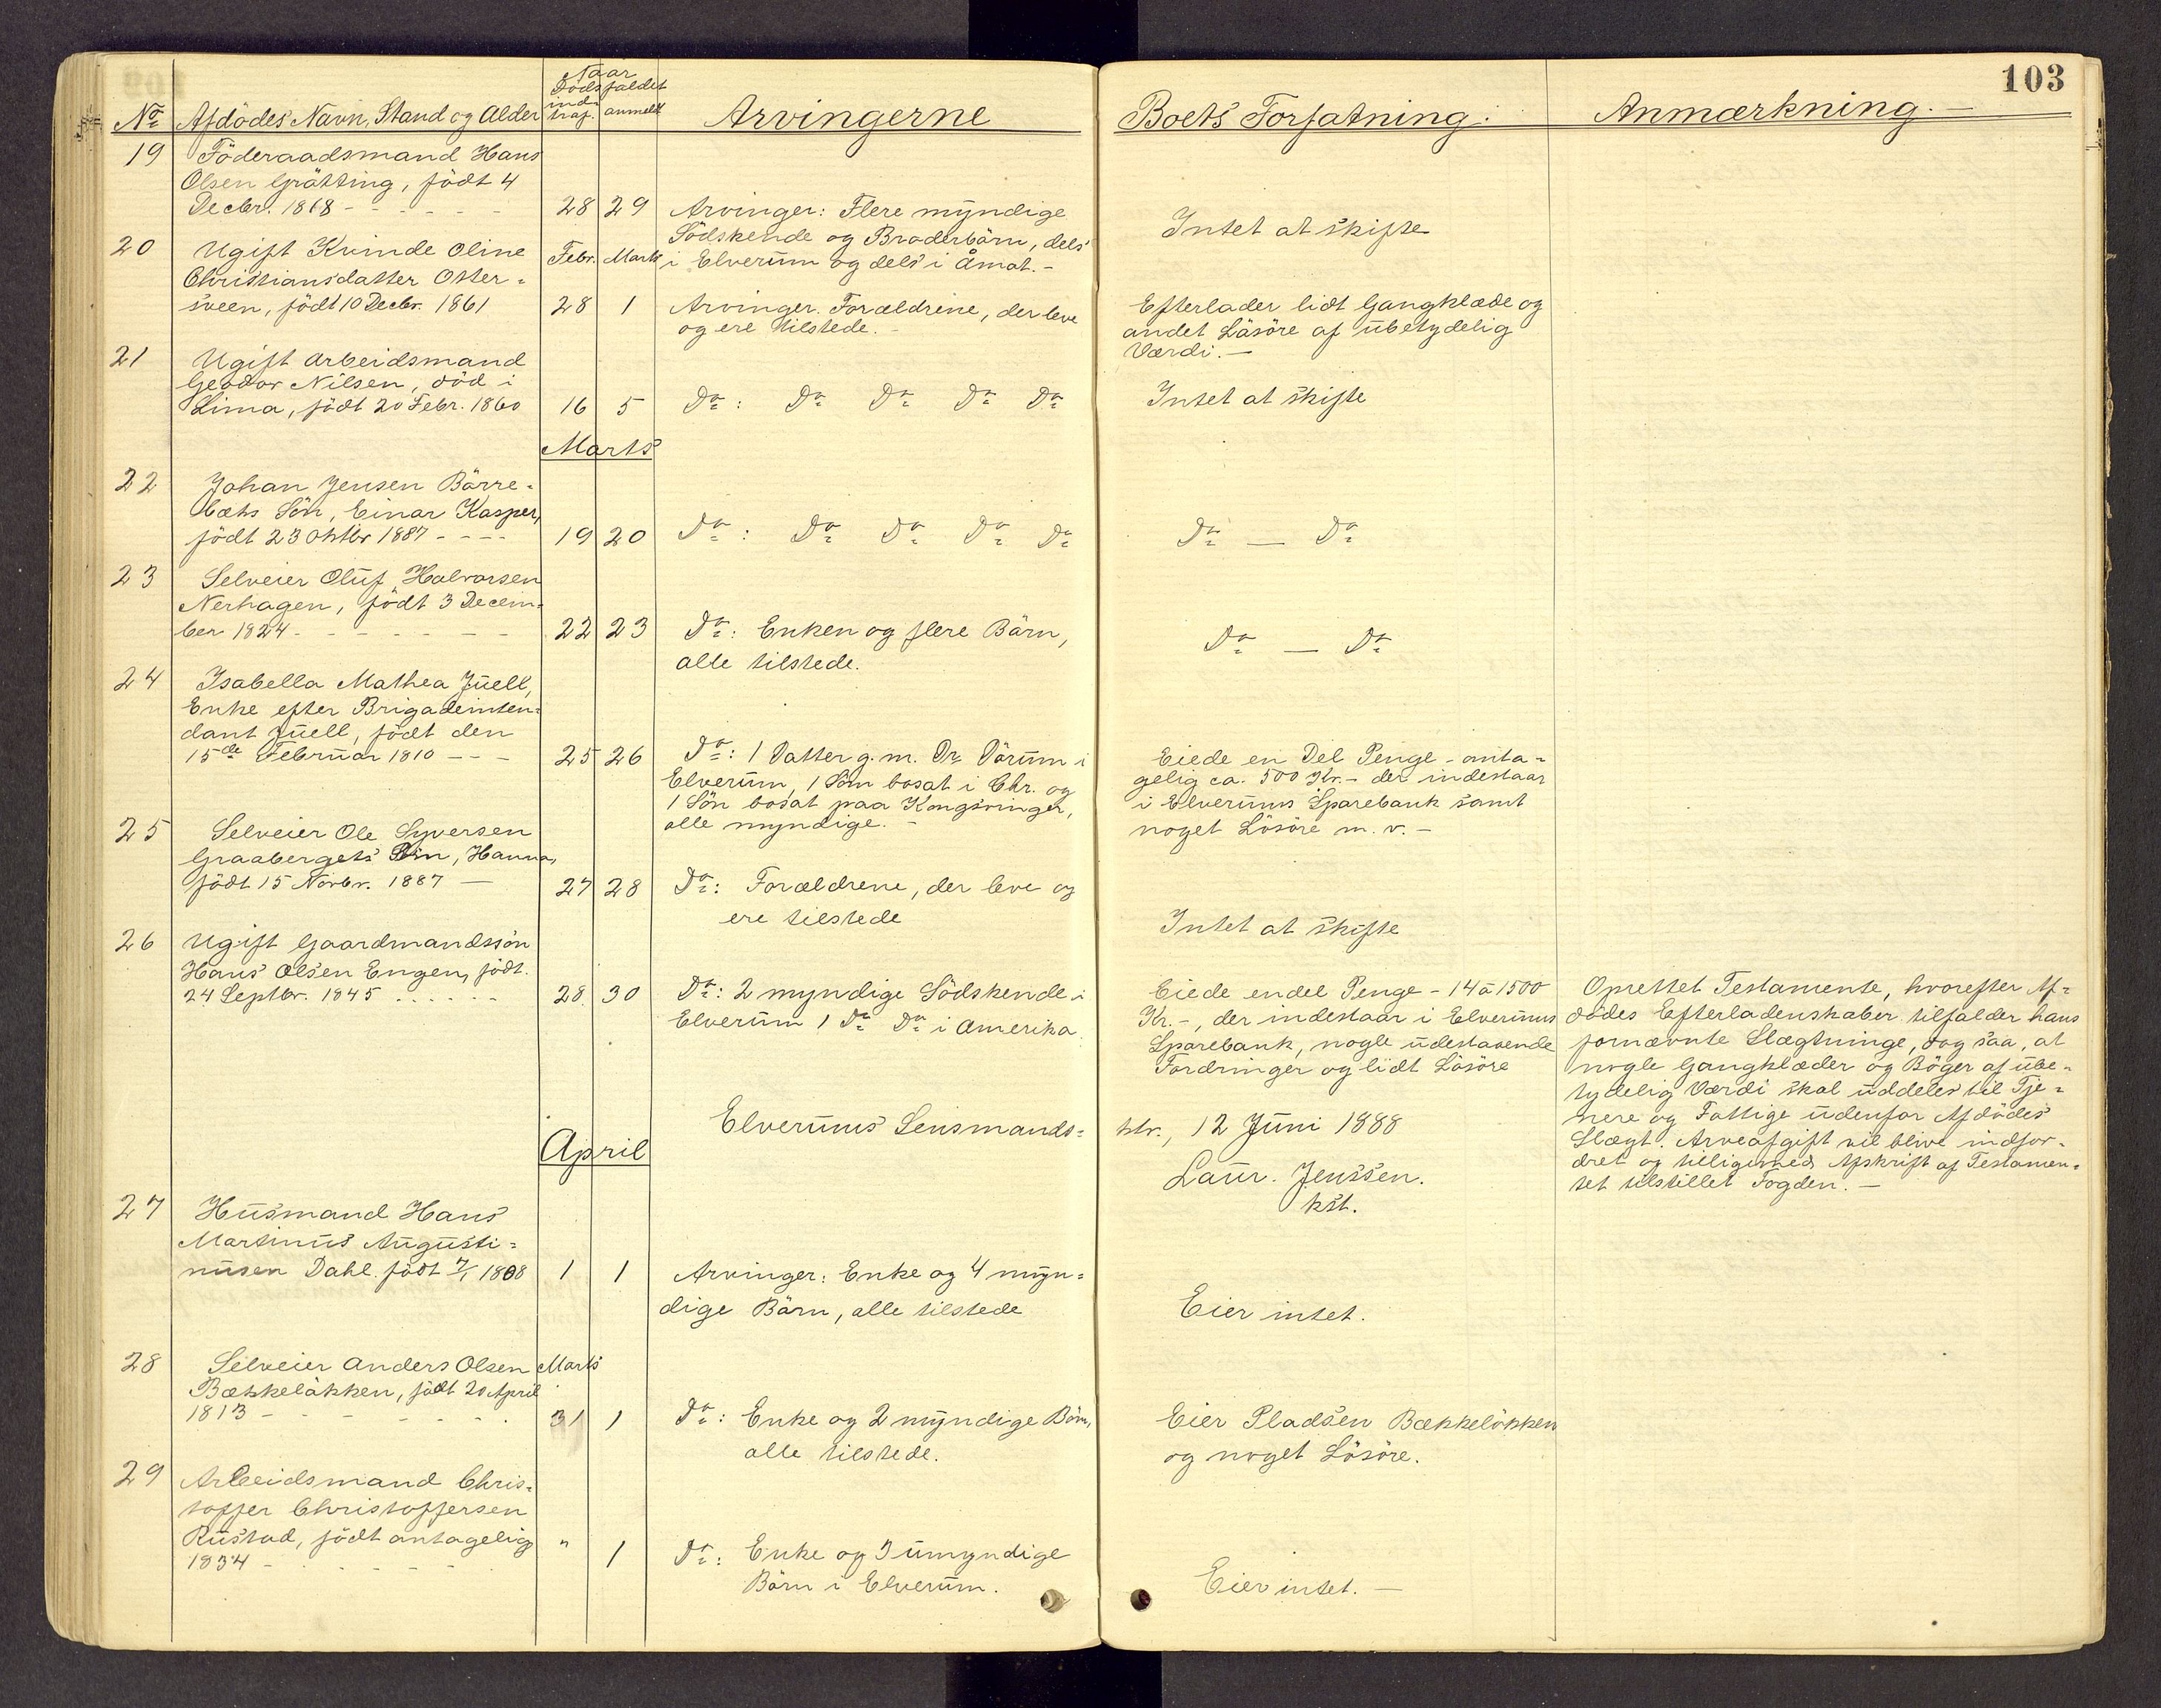 103
No Afdödes Navn, Stand og Alder
Naar
Dödsfaldet
ind-
traf. anmeldt
Arvingerne
Boets Forfatning.
Anmærkning.-
19 Föderaadsmand Hans
Olsen Grätting, födt 4
Decbr. 1818 - - - - - 28 29 Arvinger: Flere myndige
Södskende og Broderbörn, dels
i Elverum og dels i Åmot.-
Intet at skifte
20 Ugift Kvinde Oline Febr. Marts
Christiansdatter Otter-
sveen, födt 10 Decbr. 1861 28 1 Arvinger. Forældrene, der leve
og ere tilstede.-
Efterlader lidt Gangklæde og
andet Lösöre af ubetydelig
Værdi.-
21 Ugift Arbeidsmand
Geodor Nilsen, död i
Lima, födt 20 Febr. 1860 16 5 Do: Do Do Do Do
Intet at skifte
Marts
22 Johan Jensen Börre-
bæks Sön, Einar Kasper,
födt 23 Oktbr 1887 - - - - 19 20 Do: Do Do Do Do
Do - Do
23 Selveier Oluf Halvorsen
Nerhagen, födt 3 Decem-
ber 1824 - - - - - - 22 23 Do: Enken og flere Börn,
alle tilstede.
Do - Do
24 Isabella Mathea Juell,
Enke efter Brigadeinten-
dant Juell, födt den
15de Februar 1810 - - - 25 26 Do: 1 Datter g. m. Dr. Dörum i
Elverum, 1 Sön bosat i Chr. og
1 Sön bosat paa Kongsvinger,
alle myndige.-
Eiede en Del Penge - anta-
gelig ca. 500 Kr. - der indestaar
i Elverums Sparebank samt
noget Lösöre m. v.-
25 Selveier Ole Syversen
Graabergets Sön, Hanna,
födt 15 Novbr. 1887 - 27 28 Do: Forældrene, der leve og
ere tilstede
Intet at skifte
26 Ugift Gaardmandssön
Hans Olsen Engen, födt
24 Septbr. 1845 . . . . . . 28 30 Do: 2 myndige Södskende i
Elverum 1 Do Do i Amerika
Eiede endel Penge - 14 à 1500
Kr.-, der indestaar i Elverums
Sparebank, nogle udestaaende
Fordringer og lidt Lösöre
Oprettet Testamente, hvorefter Af-
dödes Efterladenskaber tilfalder hans
fornævnte Slægtninge, dog saa, at
nogle Gangklæder og Böger af ube-
tydelig Værdi skal uddeles til Tje-
nere og Fattige udenfor Afdödes
Slægt. Arveafgift vil blive indfor-
dret og tilligemed Afskrift af Testamen-
tet tilstillet Fogden.-
Elverums Lensmands-
ktr., 12 Juni 1888
Laur. Jenssen.
kst.
April
27 Husmand Hans
Martinus Augusti-
nusen Dahl. födt 7/1 1808 1 1 Arvinger: Enke og 4 myn-
dige Börn, alle tilstede
Eier intet.
28 Selveier Anders Olsen Marts
Bækkelökken, födt 20 April
1813 - - - - - - . 31 1 Do: Enke og 2 myndige Börn,
alle tilstede.
Eier Pladsen Bækkelökken
og noget Lösöre.
29 Arbeidsmand Chris-
toffer Christoffersen
Rustad, födt antagelig " 1 Do: Enke og 3 umyndige
1834 - - - - - Börn i Elverum.
Eier intet.-